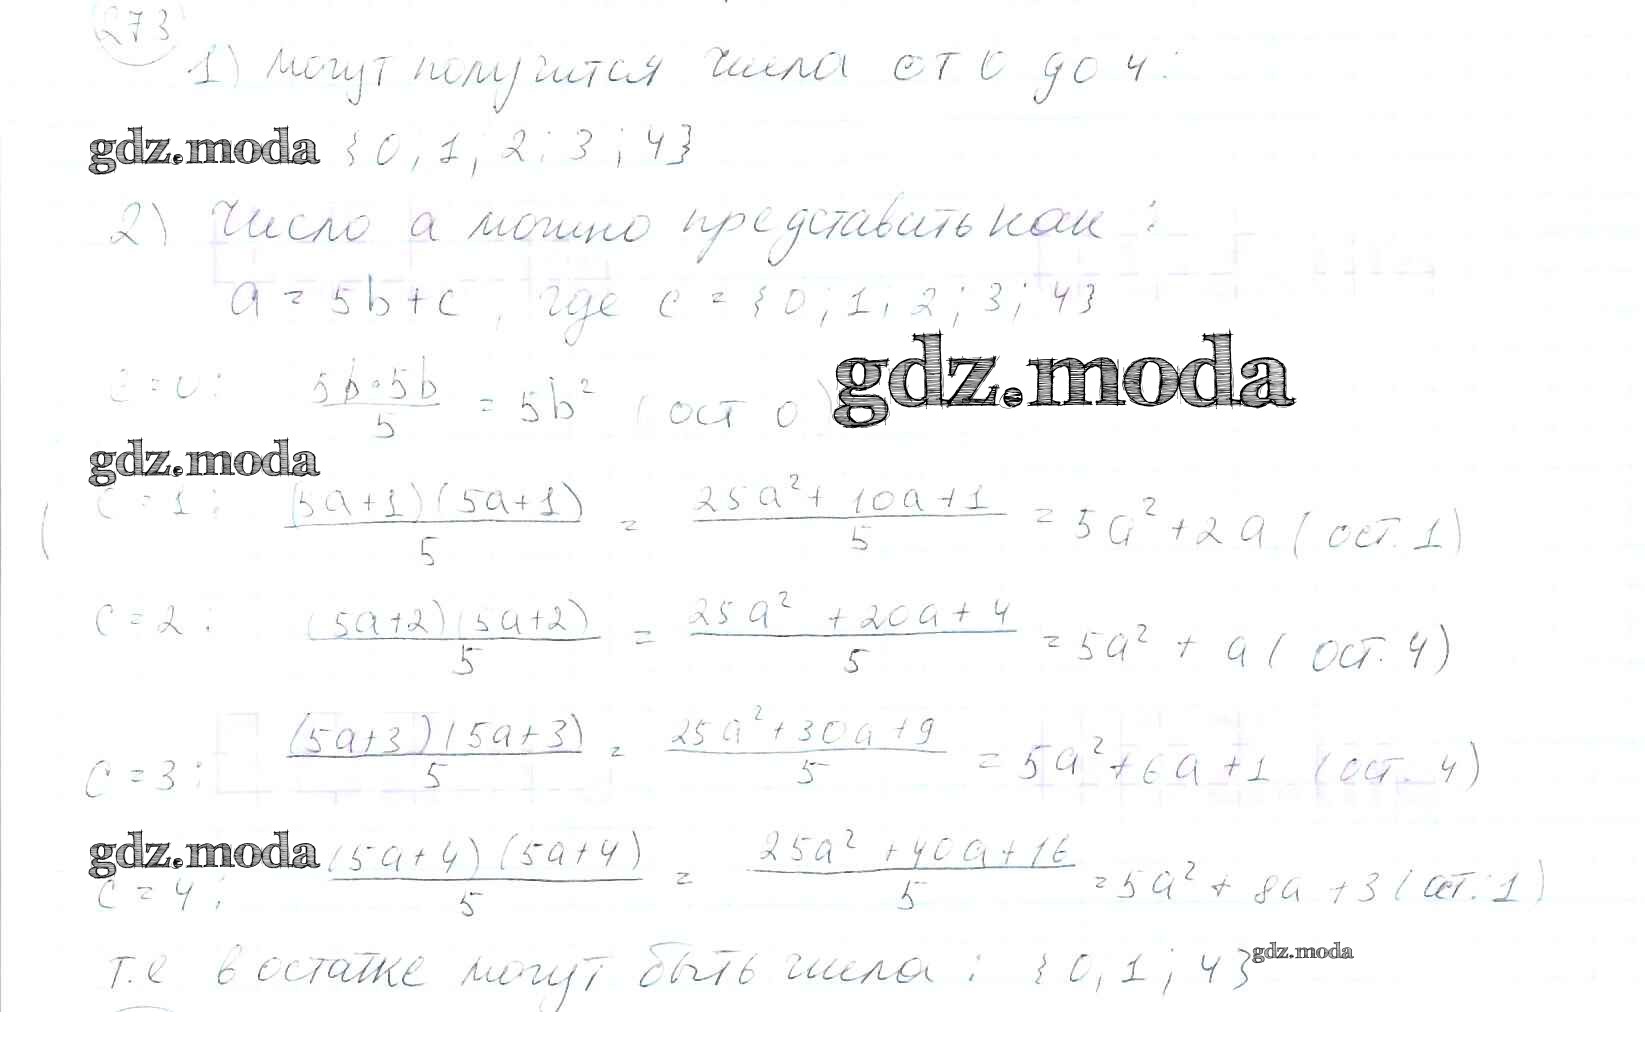 273
1) могут получится числа от 0 до 4:
gdz.moda {0, 1, 2; 3; 4}
2) Число а можно представить как:
a = 5b+c, где c = {0; 1; 2; 3; 4}
gdz.moda
c=0: 5b·5b/5 = 5b² (ост 0)
gdz.moda
c=1: (5a+1)(5a+1)/5 = 25a²+10a+1/5 = 5a²+2a (ост. 1)
c=2: (5a+2)(5a+2)/5 = 25a²+20a+4/5 = 5a²+a (ост. 4)
c=3: (5a+3)(5a+3)/5 = 25a²+30a+9/5 = 5a²+6a+1 (ост. 4)
gdz.moda
c=4: (5a+4)(5a+4)/5 = 25a²+40a+16/5 = 5a²+8a+3 (ост. 1)
т.е в остатке могут быть числа: {0, 1; 4} gdz.moda